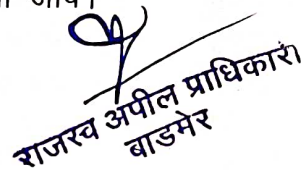 जाये।
राजस्व अपील प्राधिकारी
बाडमेर